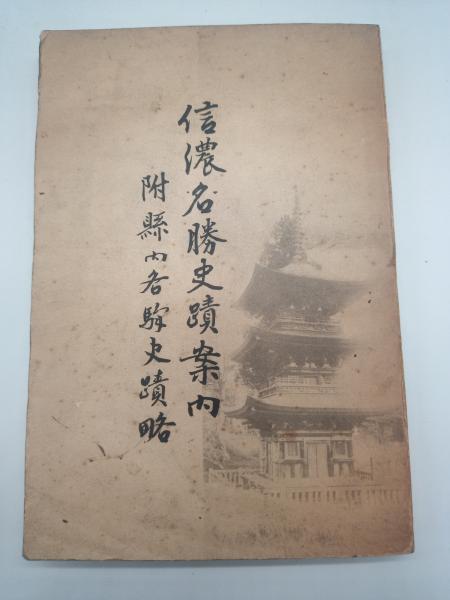 信濃名勝史蹟案内
附縣内各駅史蹟略